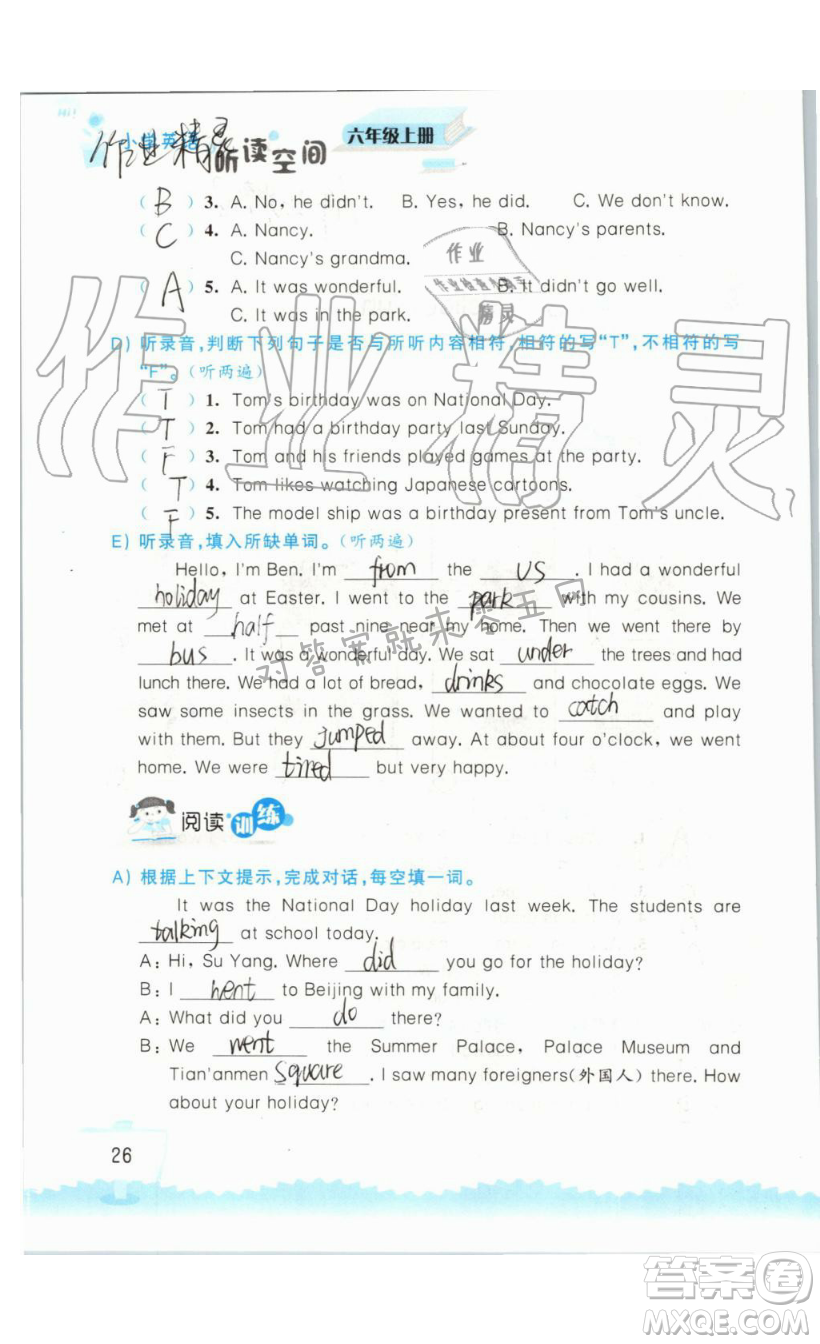 Hi!
小学英语
听读空间
六年级上册
作业精灵
( B ) 3. A. No, he didn't. B. Yes, he did. C. We don't know.
( C ) 4. A. Nancy. B. Nancy's parents.
C. Nancy's grandma.
( A ) 5. A. It was wonderful. B. It didn't go well.
C. It was in the park.
D) 听录音,判断下列句子是否与所听内容相符,相符的写“T”,不相符的写
“F”。(听两遍)
( T ) 1. Tom's birthday was on National Day.
( T ) 2. Tom had a birthday party last Sunday.
( F ) 3. Tom and his friends played games at the party.
( T ) 4. Tom likes watching Japanese cartoons.
( F ) 5. The model ship was a birthday present from Tom's uncle.
作业精灵
E) 听录音,填入所缺单词。(听两遍)
Hello, I'm Ben. I'm from the US. I had a wonderful
holiday at Easter. I went to the park with my cousins. We
met at half past nine near my home. Then we went there by
bus. It was a wonderful day. We sat under the trees and had
lunch there. We had a lot of bread, drinks and chocolate eggs. We
saw some insects in the grass. We wanted to catch and play
with them. But they jumped away. At about four o'clock, we went
home. We were tired but very happy.
对答案就来零五网
阅读训练
A) 根据上下文提示,完成对话,每空填一词。
It was the National Day holiday last week. The students are
talking at school today.
A: Hi, Su Yang. Where did you go for the holiday?
B: I went to Beijing with my family.
A: What did you do there?
B: We went the Summer Palace, Palace Museum and
Tian'anmen Square. I saw many foreigners(外国人) there. How
about your holiday?
26
答案卷
MXQE.COM